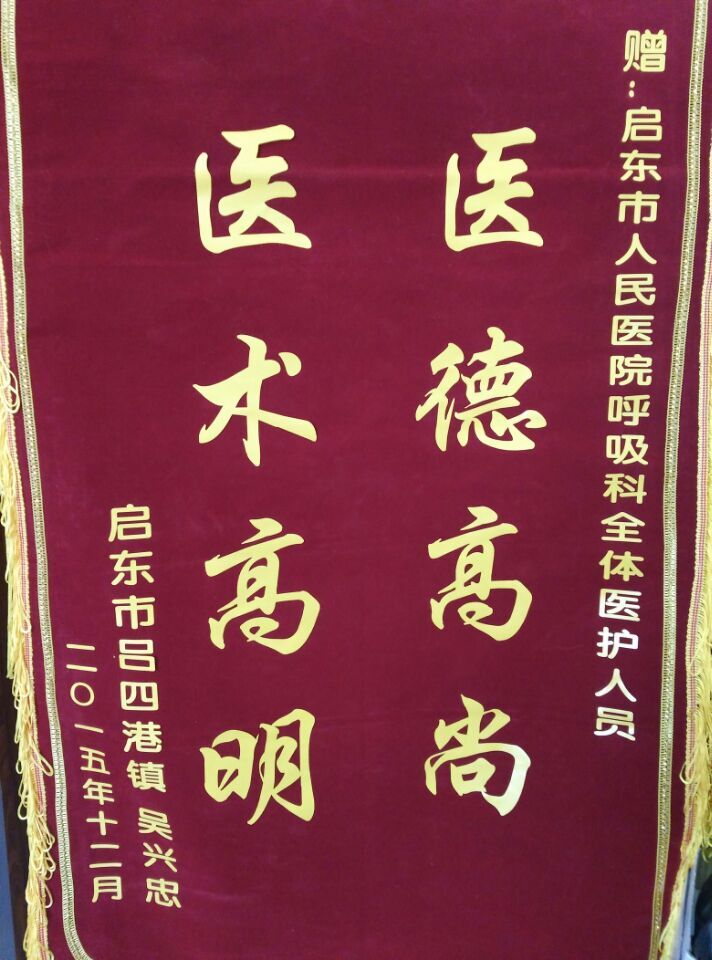 赠：启东市人民医院呼吸科全体医护人员
医德高尚
医术高明
启东市吕四港镇 吴兴忠
二〇一五年十二月